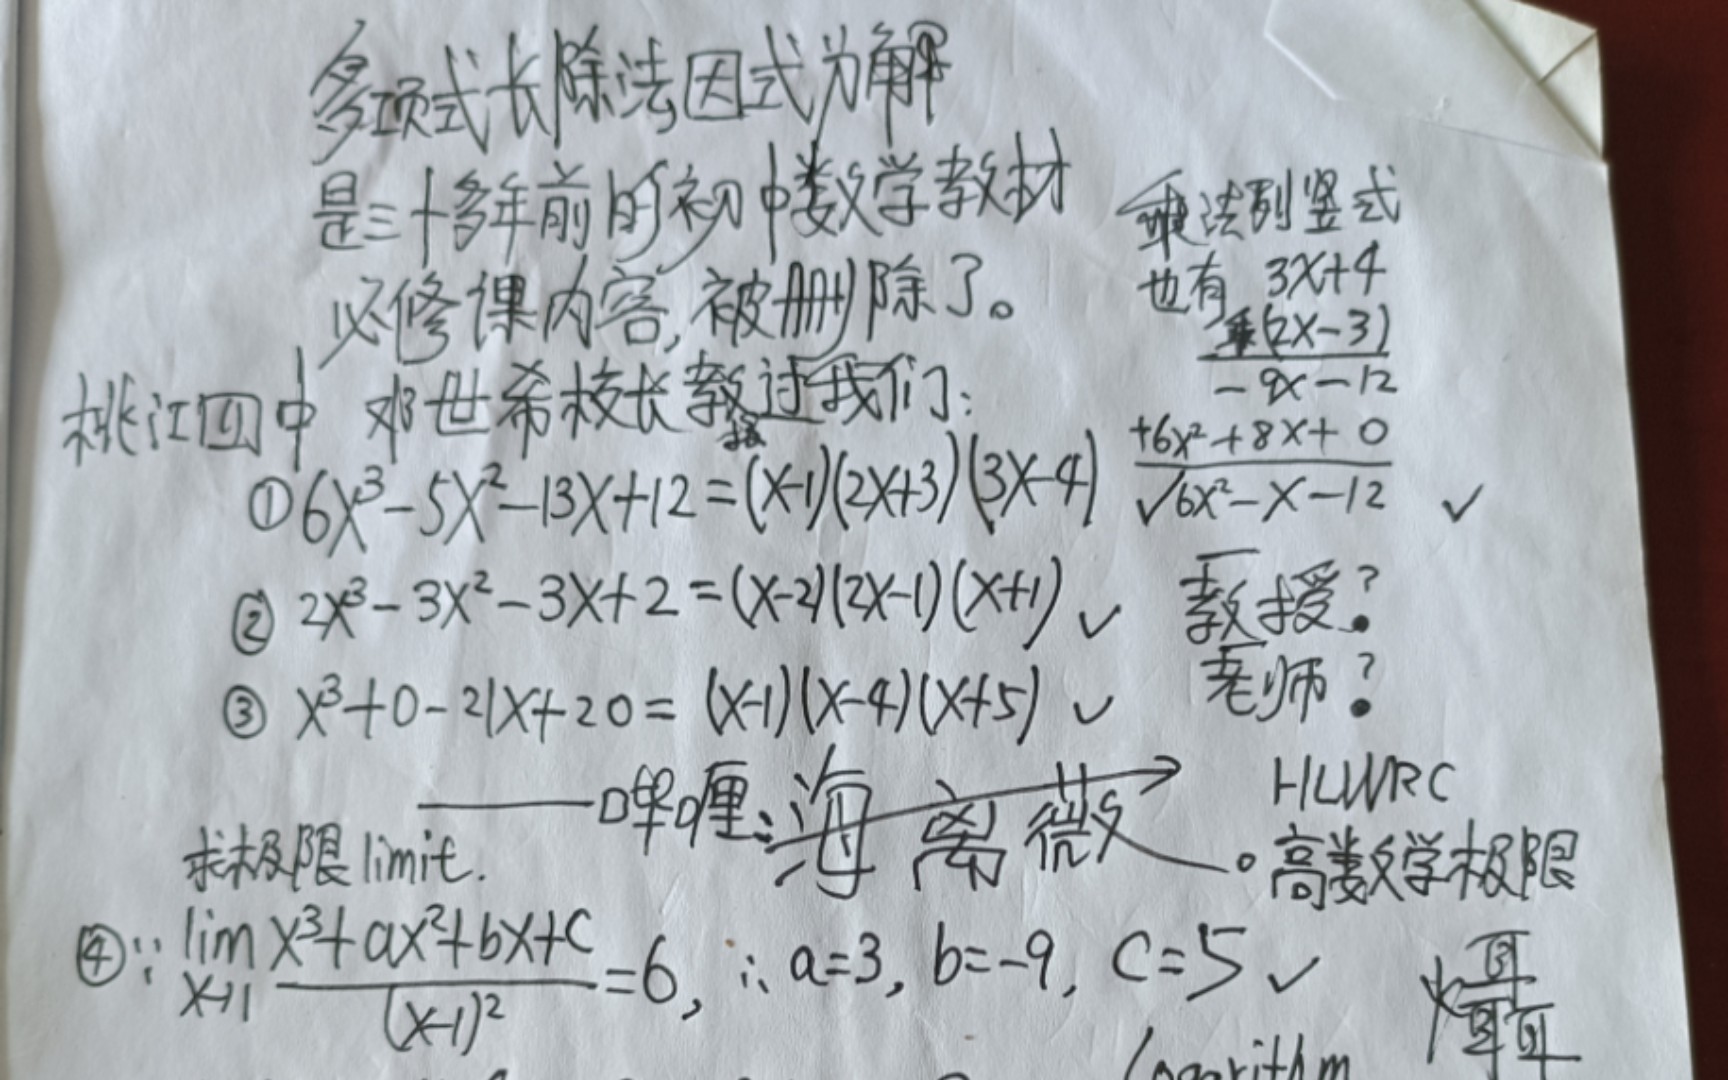 多项式长除法因式分解
是三十多年前的初中数学教材
必修课内容,被删除了。
桃江四中 邓世希校长教过我们:
①6x³-5x²-13x+12=(x-1)(2x+3)(3x-4)
② 2x³-3x²-3x+2=(x-2)(2x-1)(x+1) ✓
③ x³+0-21x+20= (x-1)(x-4)(x+5) ✓
乘法列竖式
也有 3x+4
乘(2x-3)
-9x-12
+6x²+8x+0
√6x²-x-12 ✓
教授?
老师?
——哔喱:海离微
HLWRC
高数学极限
求极限limit.
④∵ lim x³+ax²+bx+c
x→1 (x-1)² =6, ∴a=3, b=-9, c=5 ✓
Logarithm